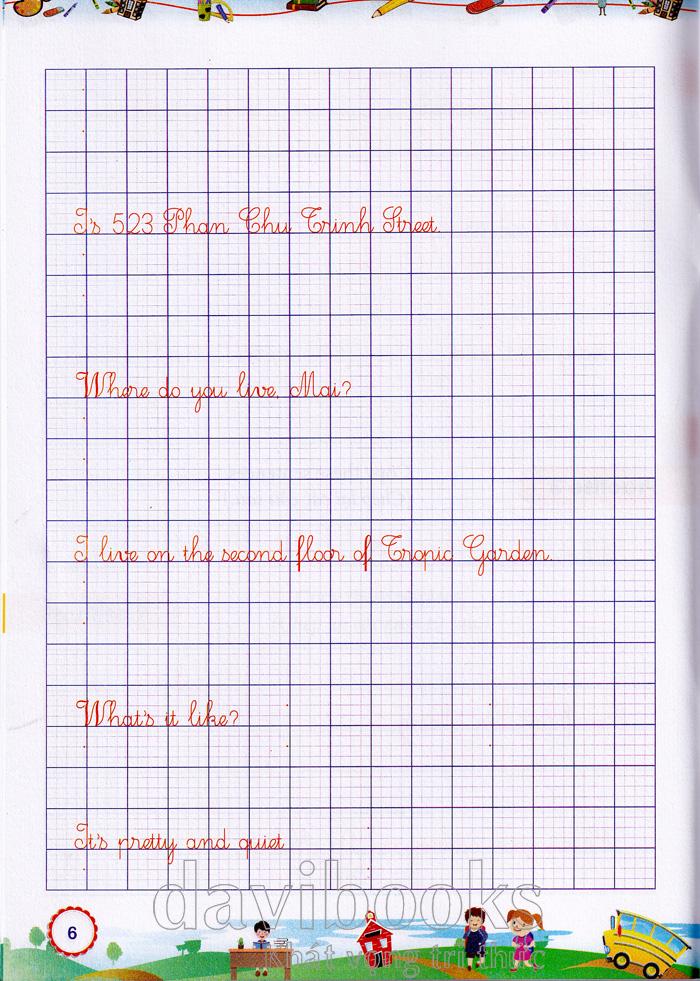 I's 523 Phan Chu Trinh Street.
Where do you live, Mai?
I live on the second floor of Tropic Garden.
What's it like?
It's pretty and quiet
davibooks
6
Khát vọng tri thức